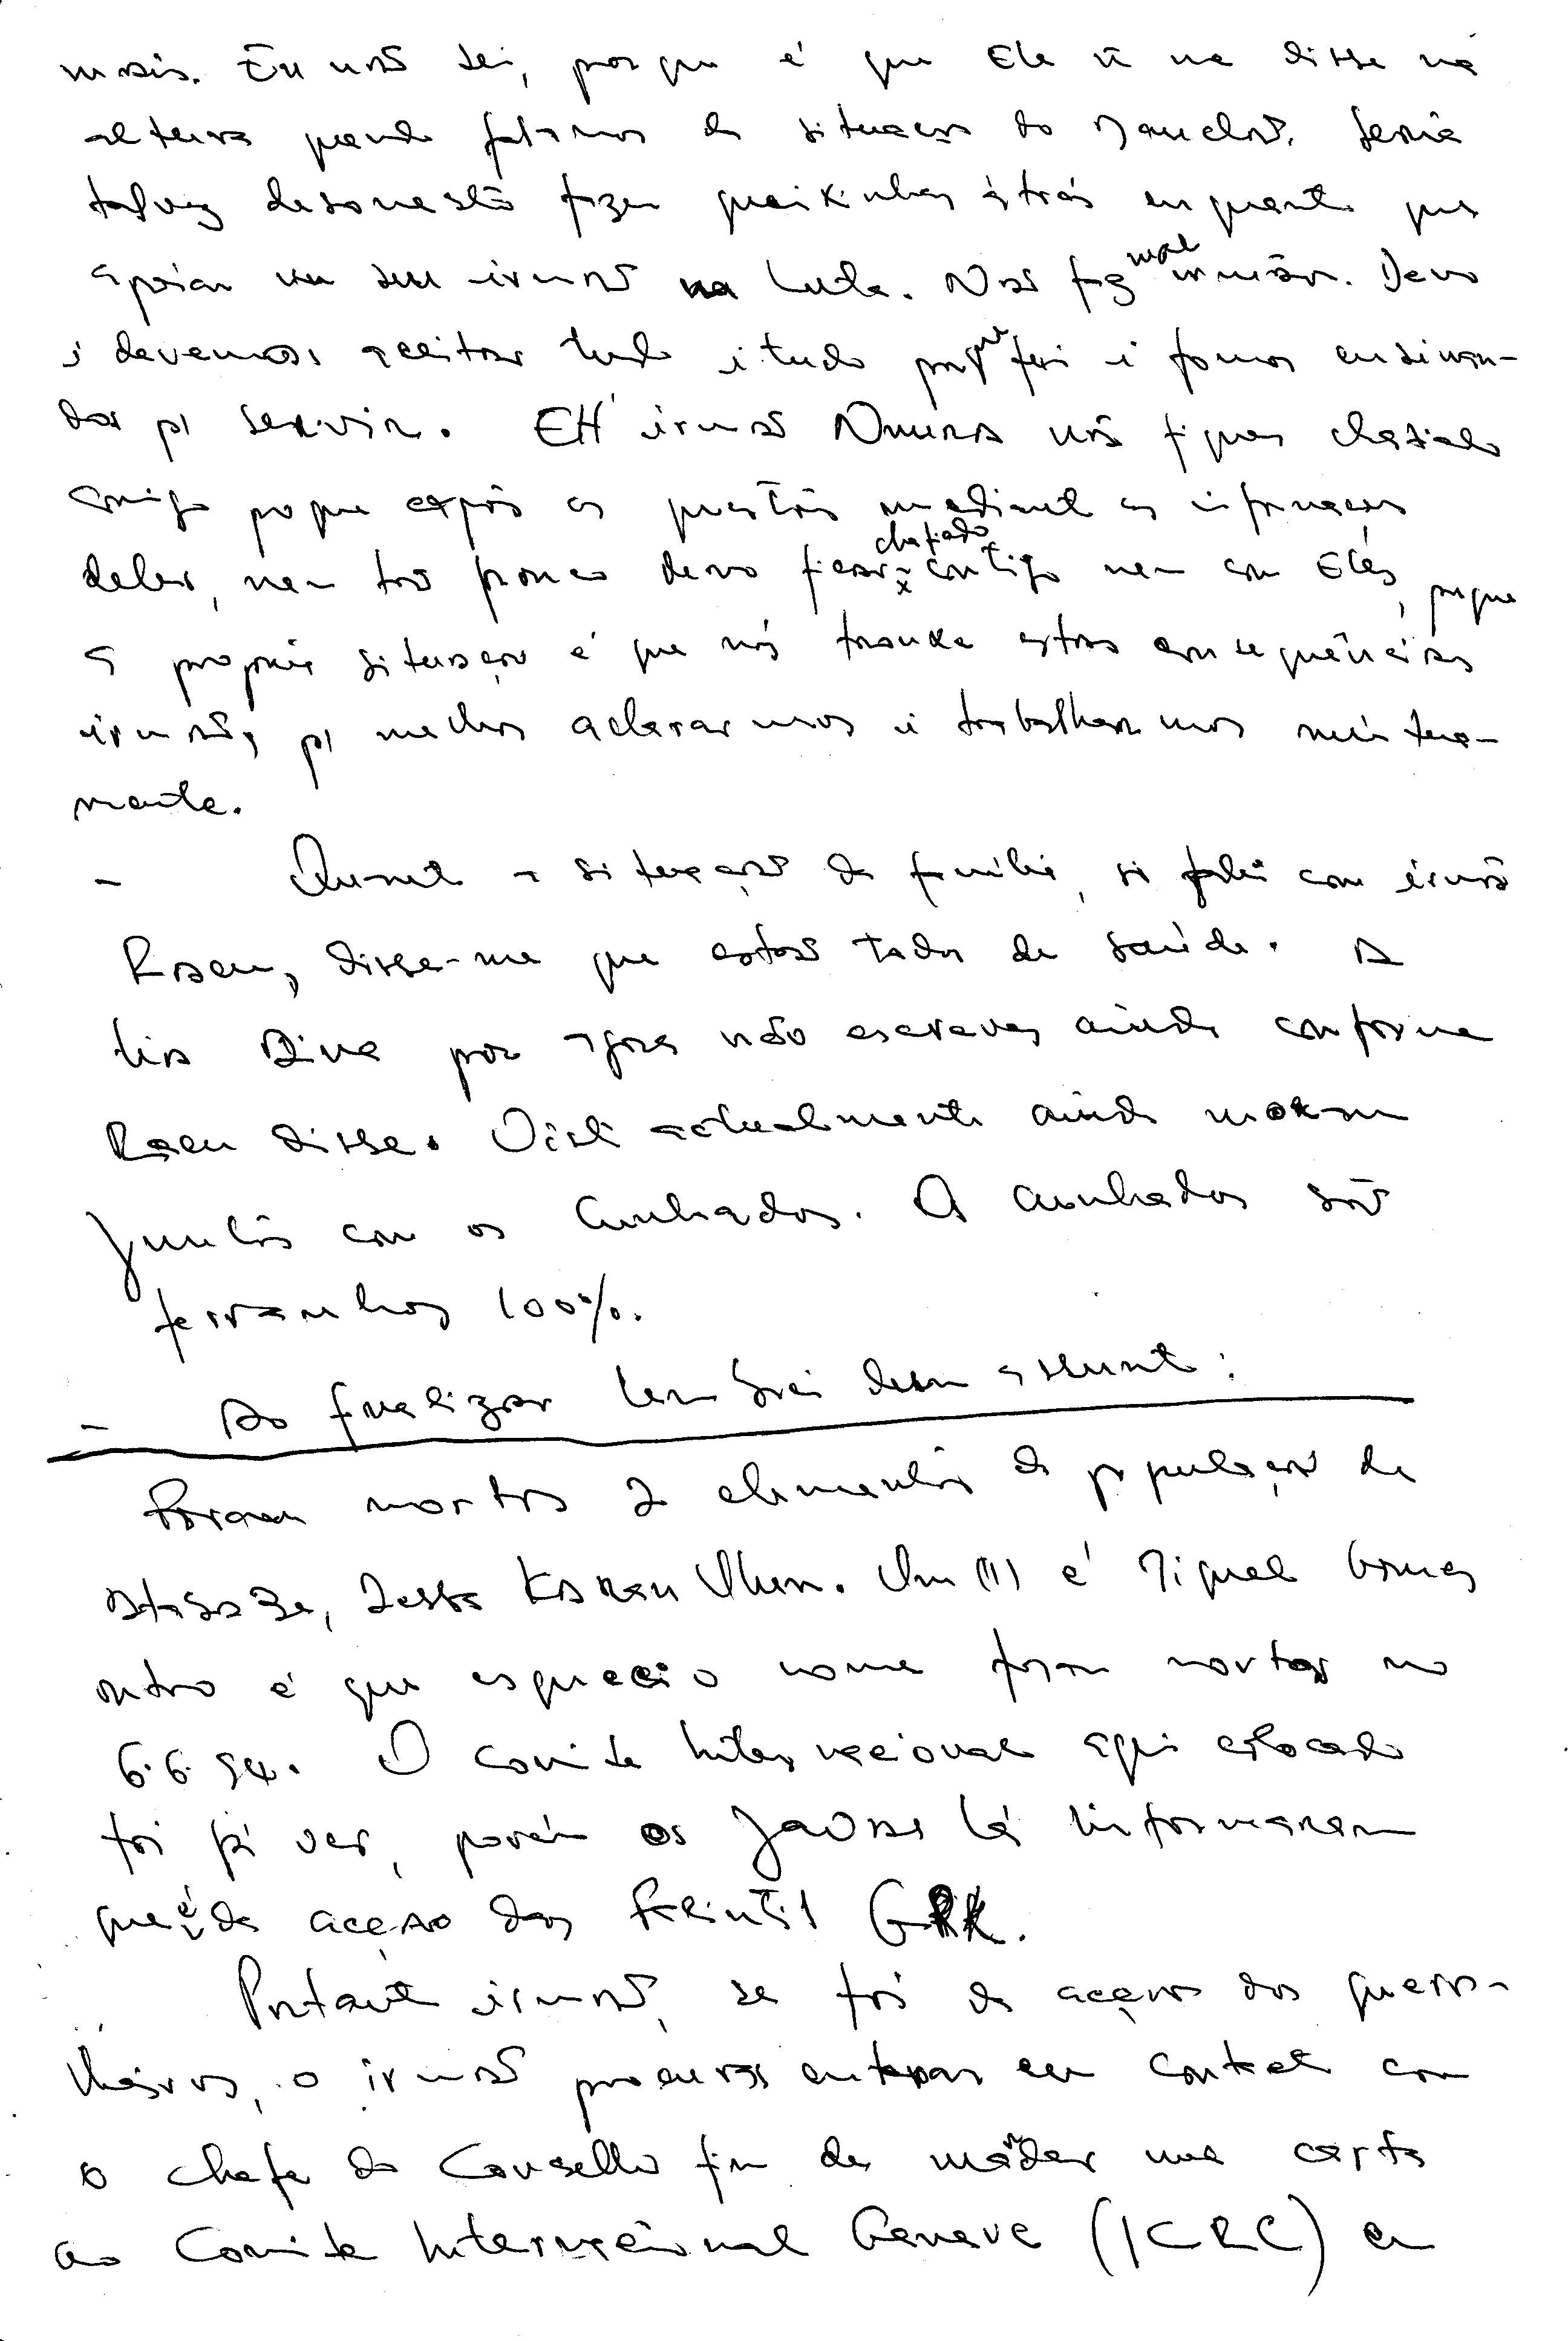 mais. Eu não sei, porque é que Ele ñ me disse na
altura quando falamos da situação do Mauclaõ. Seria
talvez desonesto fazer queixinhas atrás enquanto que
apoiar um seu irmão na Luta. Não faz mal irmão. Devo
i devemos aceitar tudo i tudo porque foi i fomos ensinan-
dos p/ servir. EH irmão não fiques chatiado
comigo porque expôs as questões mediante as informações
deles, nem tão pouco devo ficar chatiado contigo nem com Eles, porque
a propria situação é que nós trouxe estas consequências
irmão, p/ melhor aclararmos i trabalharmos mùtua-
mente.
- Quanto a situação da família, si falei com irmão
Rasen, disse-me que estão todos de saúde. A
tia Dina por agora não escreves ainda conforme
Rasen disse. Oist actualmente ainda moram
juntos com os Cunhados. O cunhados são
ferranhos 100%.
- Ao finalizar lembrei dum assunto:
Foram mortos 2 elementos da população de
Atsabe, Um (1) é Miguel Gomes
outro é que esqueci o nome foram mortos no
6.6.94. O comite Internacional aqui colocado
foi já ver, porém os Javas lá informaram
que é da acção das Falintil
Portanto irmão, se foi da acção dos guerri-
lheiros, o irmão procuras entrar em contato com
o chefe do Conselho fin de mandar uma carta
ao Comite Internacional Geneve (ICRC) em